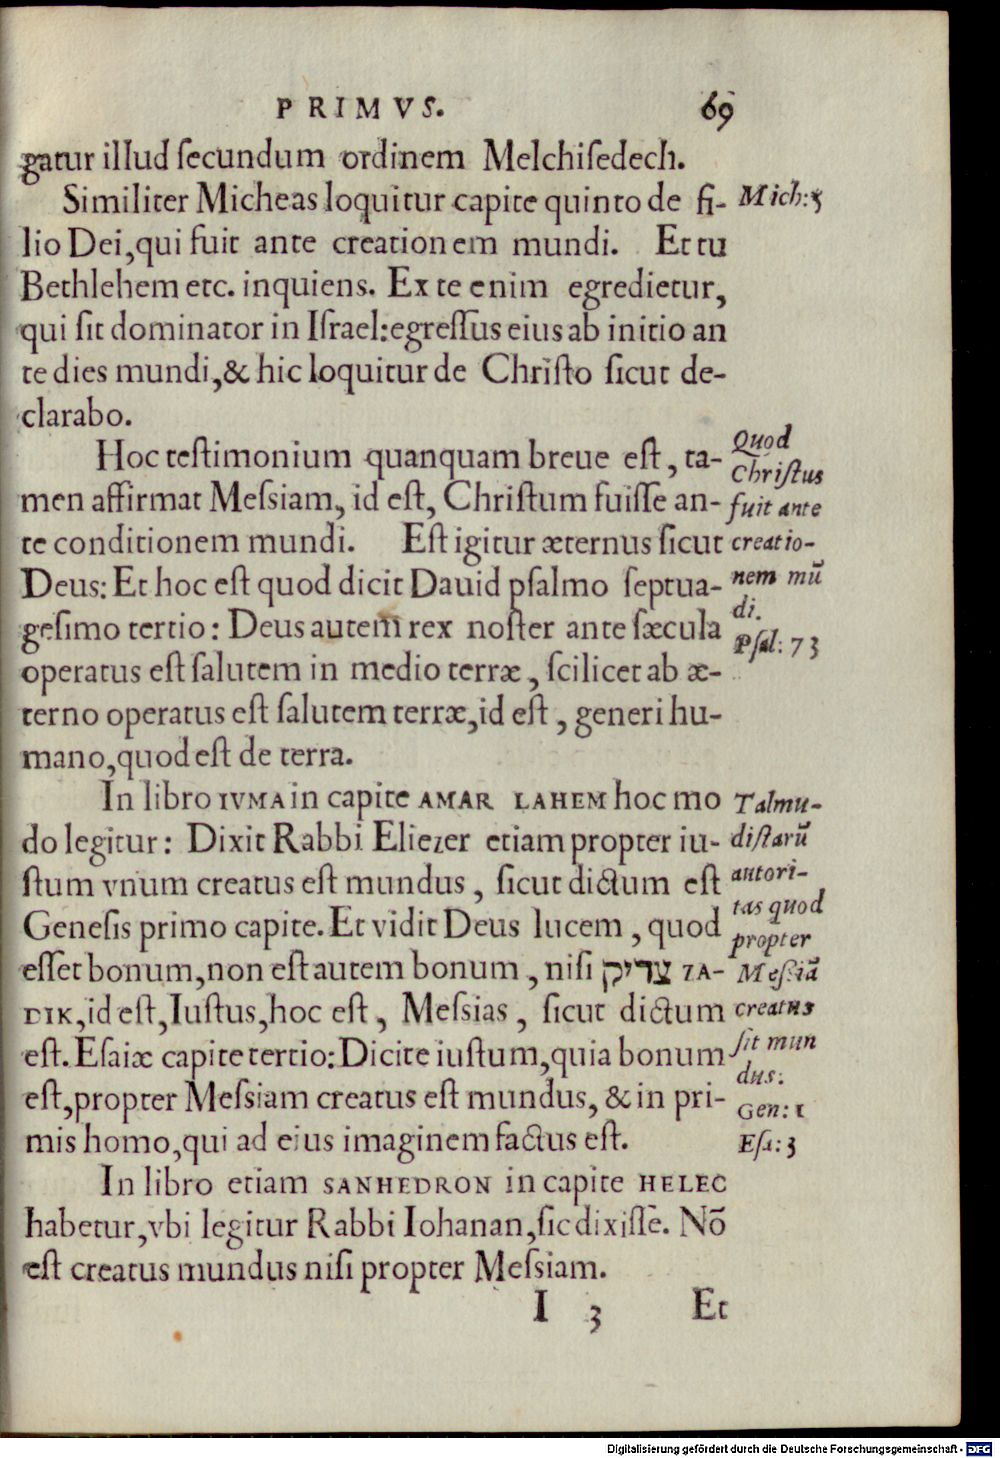 PRIMVS. 69
gatur illud ſecundum ordinem Melchiſedech.
Similiter Micheas loquitur capite quinto de fi-
Mich: 5
lio Dei, qui fuit ante creationem mundi. Et tu
Bethlehem etc. inquiens. Ex te enim egredietur,
qui ſit dominator in Iſrael: egreſſus eius ab initio an
te dies mundi, & hic loquitur de Chriſto ſicut de-
clarabo.
Hoc teſtimonium quanquam breue eſt, ta-
men affirmat Meſsiam, id eſt, Chriſtum fuiſſe an-
te conditionem mundi. Eſt igitur æternus ſicut
Deus: Et hoc eſt quod dicit Dauid pſalmo ſeptua-
geſimo tertio: Deus autem rex noſter ante ſæcula
operatus eſt ſalutem in medio terræ, ſcilicet ab æ-
terno operatus eſt ſalutem terræ, id eſt, generi hu-
mano, quod eſt de terra.
Quod
Chriſtus
fuit ante
creatio-
nem mū
di.
Pſal: 73
In libro IVMA in capite AMAR LAHEM hoc mo
do legitur: Dixit Rabbi Eliezer etiam propter iu-
ſtum vnum creatus eſt mundus, ſicut dictum eſt
Geneſis primo capite. Et vidit Deus lucem, quod
eſſet bonum, non eſt autem bonum, niſi צדיק ZA-
DIK, id eſt, Iuſtus, hoc eſt, Meſsias, ſicut dictum
eſt. Eſaiæ capite tertio: Dicite iuſtum, quia bonum
eſt, propter Meſsiam creatus eſt mundus, & in pri-
mis homo, qui ad eius imaginem factus eſt.
Talmu-
diſtarū
autori-
tas quod
propter
Meſsiā
creatus
ſit mun
dus:
Gen: 1
Eſa: 3
In libro etiam SANHEDRON in capite HELEC
habetur, vbi legitur Rabbi Iohanan, ſic dixiſſe. Nō
eſt creatus mundus niſi propter Meſsiam.
I 3 Et
Digitalisierung gefördert durch die Deutsche Forschungsgemeinschaft - DFG